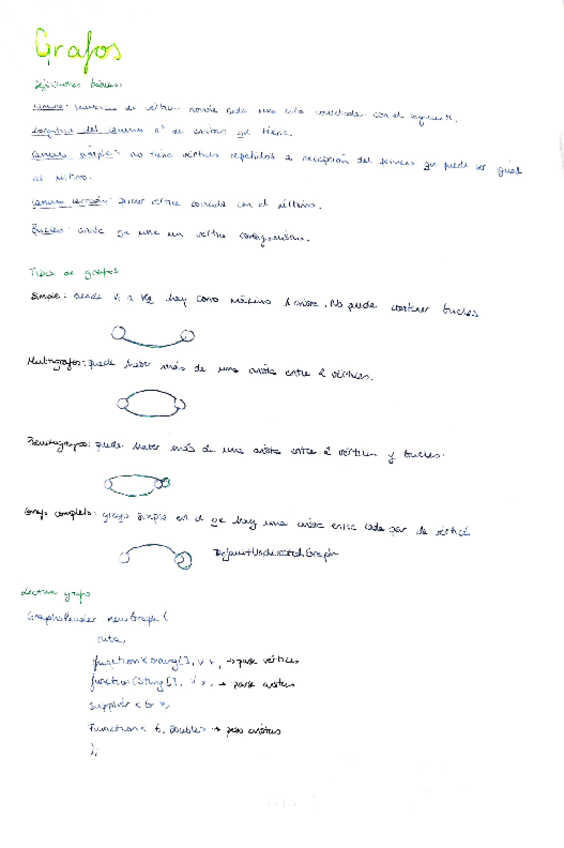 Grafos
Definiciones básicas
Camino: secuencia de vértices donde cada uno está conectado con el siguiente.
Longitud del camino: nº de aristas que tiene.
Camino simple: no tiene vértices repetidos a excepción del primero que puede ser igual
al último.
Camino cerrado: primer vértice coincide con el último.
Bucles: arista que une un vértice consigo mismo.
Tipos de grafos
Simple: desde V1 a V2 hay como máximo 1 arista. No puede contener bucles
Multigrafos: puede haber más de una arista entre 2 vértices.
Pseudografos: puede haber más de una arista entre 2 vértices y bucles.
Grafo completo: grafo simple en el que hay una arista entre cada par de vértices
DefaultUndirectedGraph
Lectura grafo
GraphsReader newGraph (
ruta,
function<String[], V>, → pase vértices
function<String[], >, → pase aristas
Supplier <G>,
Function< E, Double> → peso aristas
);